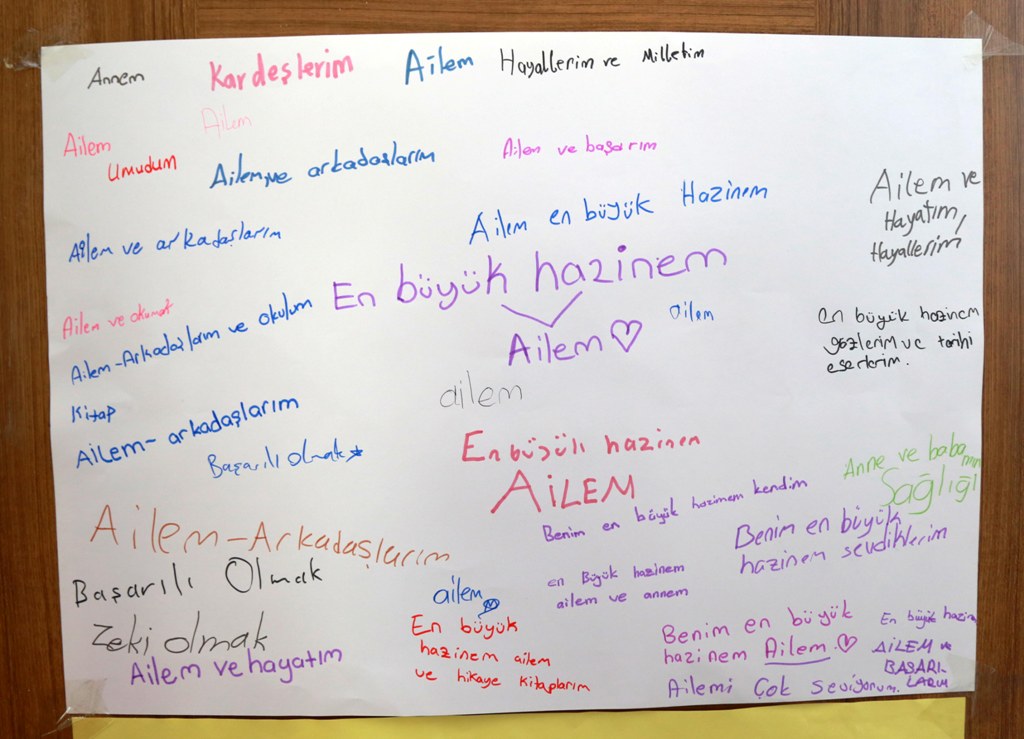 Annem
Kardeşlerim
Ailem
Hayallerim ve Milletim
Ailem
Umudum
Ailem
Ailem ve arkadaşlarım
Ailem ve başarım
Ailem ve arkadaşlarım
Ailem en büyük Hazinem
Ailem ve
Hayatım,
Hayallerim
En büyük hazinem
Ailem
ailem
Ailem ve okumak
Ailem-Arkadaşlarım ve okulum
en büyük hazinem
gözlerim ve tarihi
eserlerim.
Kitap
ailem
Ailem- arkadaşlarım
Başarılı olmak
En büyük hazinem
AİLEM
Anne ve babamın
Sağlığı
Benim en büyük hazinem kendim
Benim en büyük
hazinem sevdiklerim
Ailem-Arkadaşlarım
Başarılı Olmak
Zeki olmak
Ailem ve hayatım
ailem
en Büyük hazinem
ailem ve annem
En büyük
hazinem ailem
ve hikaye kitaplarım
Benim en büyük
hazinem Ailem
Ailemi Çok seviyorum.
En büyük hazinem
AİLEM ve
BAŞARI-
LARIM